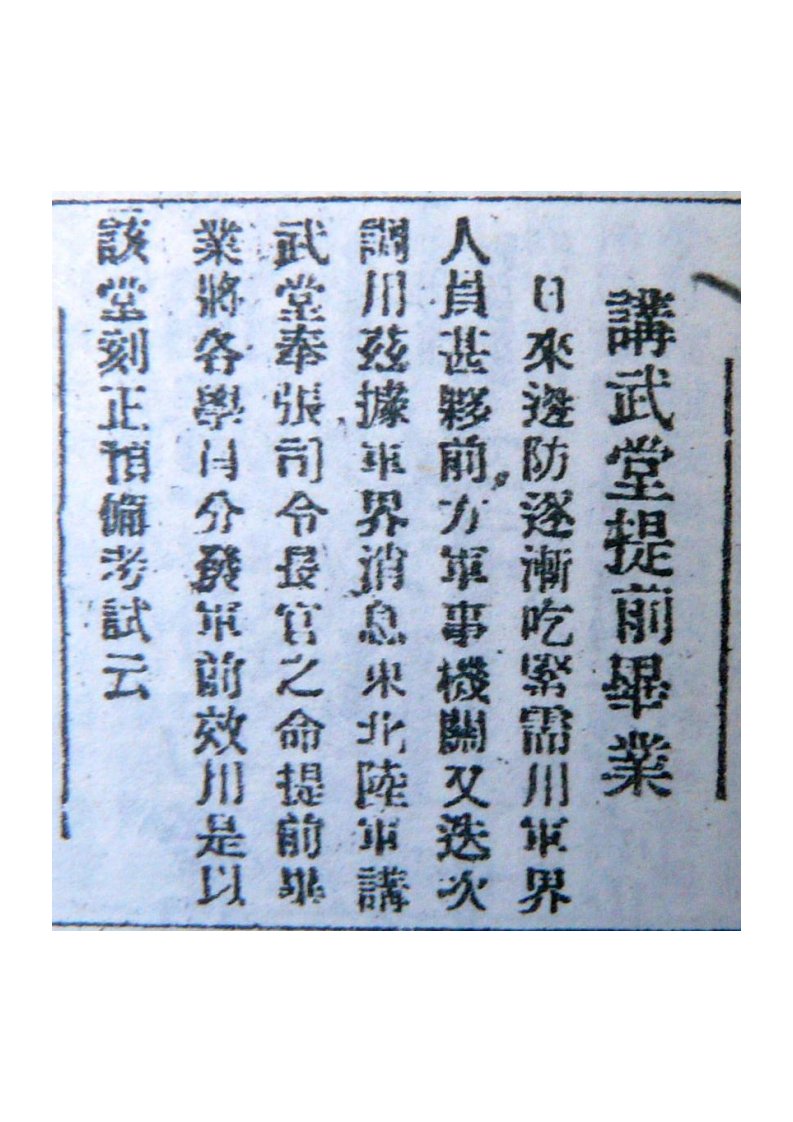 講武堂提前畢業
日來邊防逐漸吃緊需用軍界
人員甚夥前方軍事機關又迭次
調用茲據軍界消息東北陸軍講
武堂奉張司令長官之命提前畢
業將各學員分發軍前效用是以
該堂刻正預備考試云